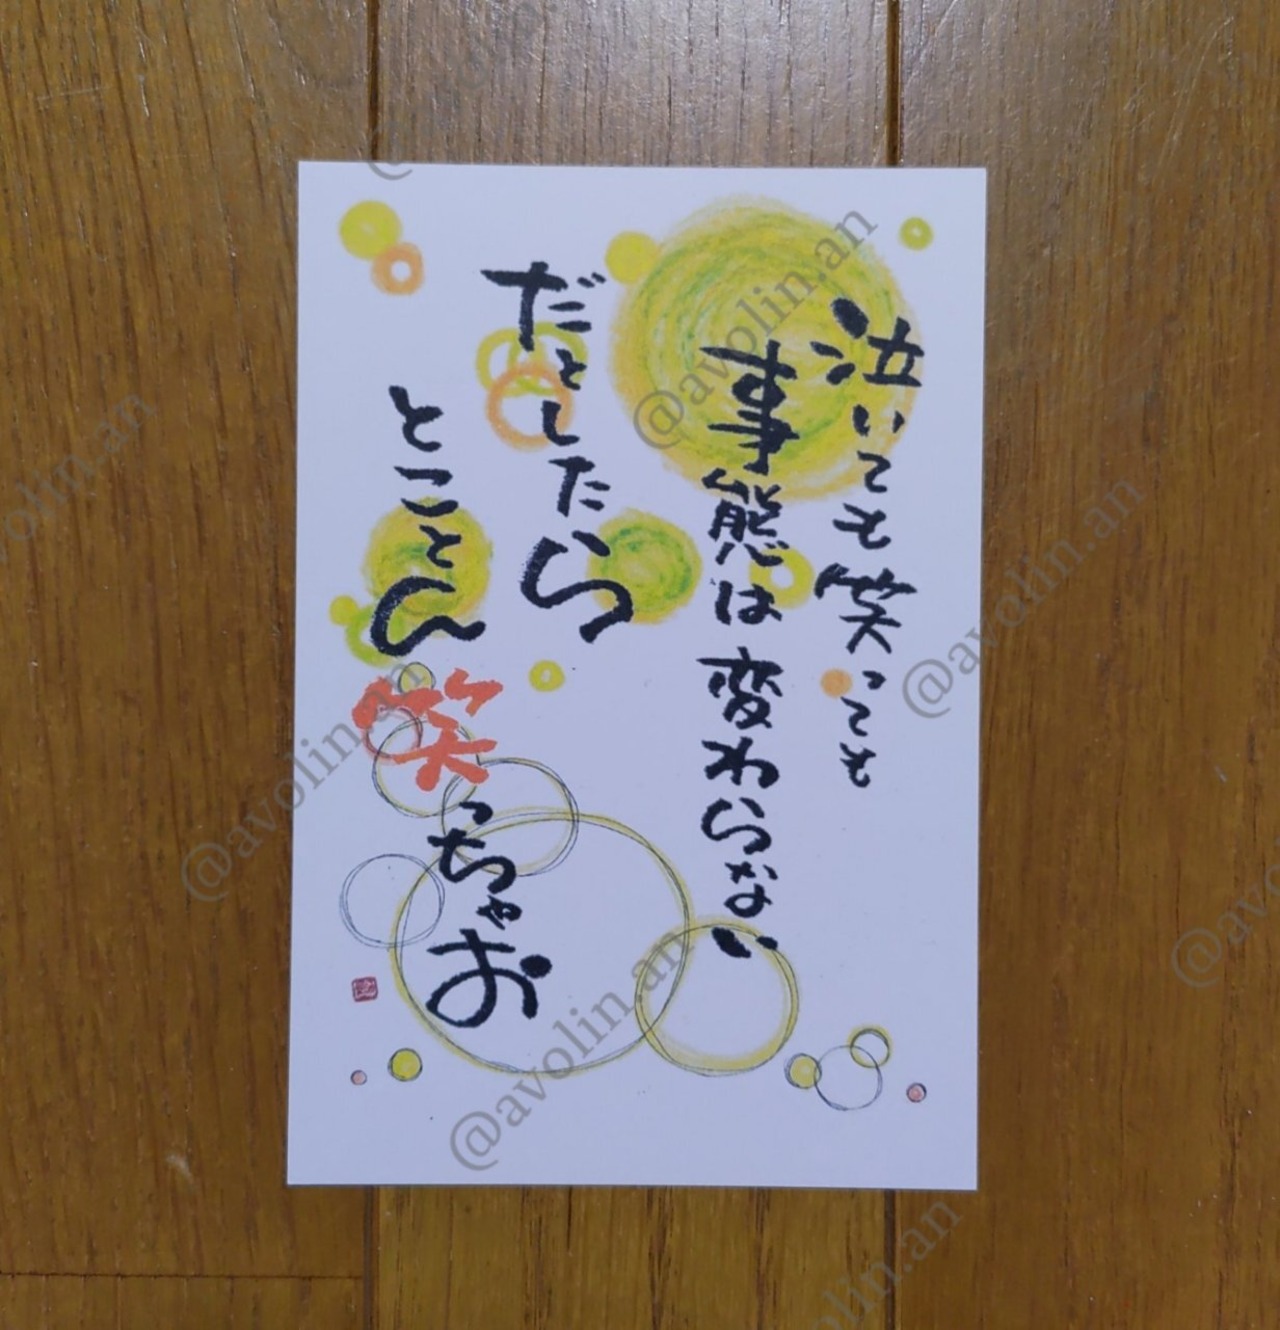 泣いても笑っても
事態は変わらない
だとしたら
とことん
笑っちゃお
@avolin.an
@avolin.an
@avolin.an
@avolin.an